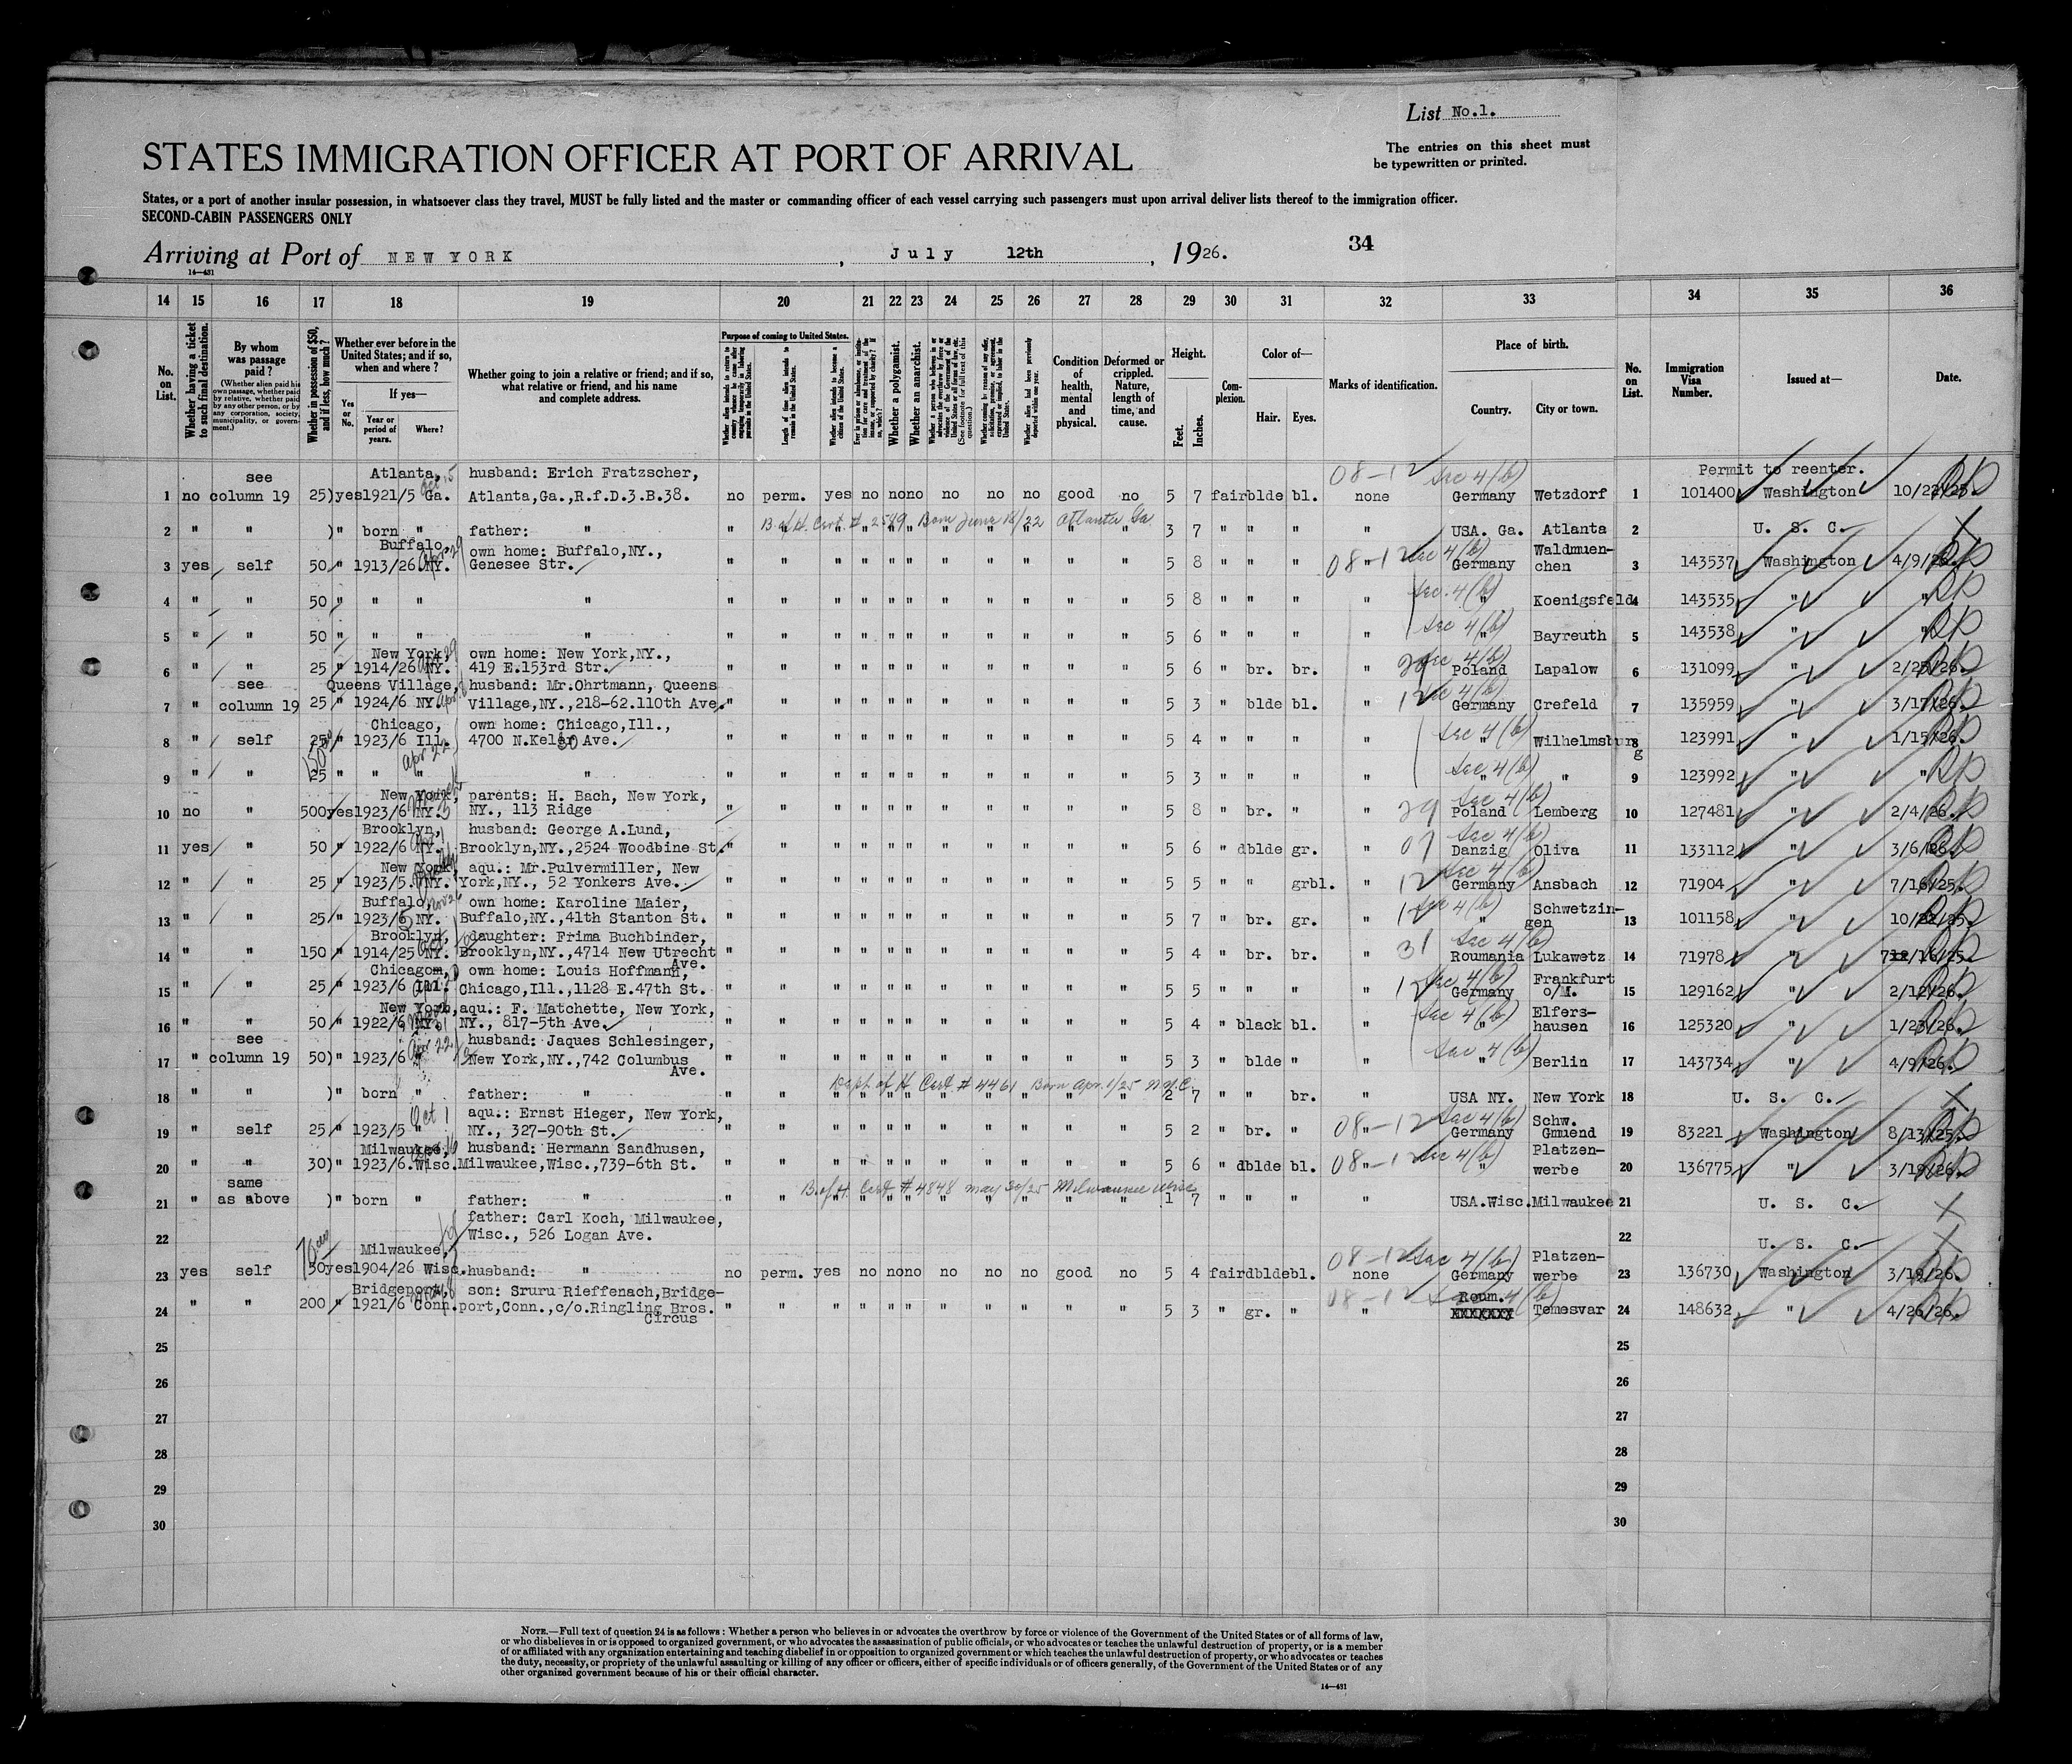 List No.1.
STATES IMMIGRATION OFFICER AT PORT OF ARRIVAL
The entries on this sheet must
be typewritten or printed.
States, or a port of another insular possession, in whatsoever class they travel, MUST be fully listed and the master or commanding officer of each vessel carrying such passengers must upon arrival deliver lists thereof to the immigration officer.
SECOND-CABIN PASSENGERS ONLY
Arriving at Port of NEW YORK, July 12th, 1926.
34
14—431
14 15 16 17 18 19 20 21 22 23 24 25 26 27 28 29 30 31 32 33 34 35 36
No. on List.
Whether having a ticket to such final destination.
By whom was passage paid?
(Whether alien paid his own passage, whether paid by relative, whether paid by any other person, or by any corporation, society, municipality, or government.)
Whether in possession of $50, and if less, how much?
Whether ever before in the United States; and if so, when and where?
Yes or No.
If yes—
Year or period of years.
Where?
Whether going to join a relative or friend; and if so, what relative or friend, and his name and complete address.
Purpose of coming to United States.
Length of time alien intends to remain in the United States.
Whether alien intends to become a citizen of the United States.
Whether a polygamist.
Whether an anarchist.
Condition of health, mental and physical.
Deformed or crippled. Nature, length of time, and cause.
Height.
Feet. Inches.
Complexion.
Color of—
Hair. Eyes.
Marks of identification.
Place of birth.
Country. City or town.
No. on List.
Immigration Visa Number.
Issued at—
Date.
see Atlanta, husband: Erich Fratzscher, 08-12 Sec 4(b) Permit to reenter.
1 no column 19 25) yes 1921/5 Ga. Atlanta,Ga.,R.f.D.3.B.38. no perm. yes no no no no no no good no 5 7 fair blde bl. none Germany Wetzdorf 1 101400 Washington 10/22/25.
B of H. Cert. # 2549 Born June 18/22 Atlanta Ga
2 " " )" born " father: " " 3 7 " " " " USA. Ga. Atlanta 2 U. S. C.
Buffalo, own home: Buffalo,NY., 08-12 Sec 4(b) Waldmuen-
3 yes self 50 " 1913/26 NY. Genesee Str. " 5 8 " " " " Germany chen 3 143537 Washington 4/9/26.
Sec. 4(b)
4 " " 50 " " " " " 5 8 " " " " " Koenigsfeld 4 143535 " "
Sec 4(b)
5 " " 50 " " " " " 5 6 " " " " " Bayreuth 5 143538 " "
New York, own home: New York,NY., Sec 4(b)
6 " " 25 " 1914/26 NY. 419 E.153rd Str. " 5 6 " br. br. " Poland Lapalow 6 131099 " 2/25/26.
see Queens Village, husband: Mr.Ohrtmann, Queens Sec 4(b)
7 " column 19 25 " 1924/6 NY. Village,NY.,218-62.110th Ave. " 5 3 " blde bl. " 12 Germany Crefeld 7 135959 " 3/17/26.
Chicago, own home: Chicago,Ill., Sec 4(b)
8 " self 25 " 1923/6 Ill. 4700 N. Ave. " 5 4 " " " " " Wilhelmsburg 8 123991 " 1/15/26.
Sec 4(b)
9 " " 25 " " " " " 5 3 " " " " " " 9 123992 " "
New York, parents: H. Bach, New York, Sec 4(b)
10 no " 500 yes 1923/6 NY. NY., 113 Ridge " 5 8 " br. " " 29 Poland Lemberg 10 127481 " 2/4/26.
Brooklyn, husband: George A.Lund, Sec 4(b)
11 yes " 50 " 1922/6 NY. Brooklyn,NY.,2524 Woodbine St. " 5 6 " dblde gr. " 07 Danzig Oliva 11 133112 " 3/6/26.
New York, aqu.: Mr.Pulvermiller, New Sec 4(b)
12 " " 25 " 1923/5. NY. York,NY., 52 Yonkers Ave. " 5 5 " " grbl. " 12 Germany Ansbach 12 71904 " 7/16/25.
Buffalo, own home: Karoline Maier, Sec 4(b) Schwetzin-
13 " " 25 " 1923/6 NY. Buffalo,NY.,41th Stanton St. " 5 7 " br. gr. " 12 " gen 13 101158 " 10/22/25.
Brooklyn, daughter: Frima Buchbinder, Sec 4(b)
14 " " 150 " 1914/25 NY. Brooklyn,NY.,4714 New Utrecht Ave. " 5 4 " br. br. " 31 Roumania Lukawetz 14 71978 " 7/16/25.
Chicago, own home: Louis Hoffmann, Sec 4(b) Frankfurt
15 " " 25 " 1923/6 Ill. Chicago,Ill.,1128 E.47th St. " 5 5 " " " " 12 Germany o/M. 15 129162 " 2/12/26.
New York, aqu.: F. Matchette, New York, Sec 4(b) Elfers-
16 " " 50 " 1922/6 NY. NY., 817-5th Ave. " 5 4 " black bl. " " hausen 16 125320 " 1/23/26.
see husband: Jaques Schlesinger, Sec 4(b)
17 " column 19 50) " 1923/6 " New York,NY.,742 Columbus Ave. " 5 3 " blde " " " Berlin 17 143734 " 4/9/26.
Dept. of H Cert # 4461 Born Apr. 1/25 N.Y.C.
18 " " )" born " father: " " 2 7 " " br. " USA NY. New York 18 U. S. C.
Oct 1 aqu.: Ernst Hieger, New York, 08-12 Sec 4(b) Schw.
19 " self 25 " 1923/5 " NY., 327-90th St. " 5 2 " br. " " Germany Gmuend 19 83221 Washington 8/13/25.
Milwaukee, husband: Hermann Sandhusen, 08-12 Sec 4(b) Platzen-
20 " " 30) " 1923/6. Wisc. Milwaukee,Wisc.,739-6th St. " 5 6 " dblde bl. " " werbe 20 136775 " 3/19/26.
same B. of H. Cert # 4848 May 30/25 Milwaukee Wisc
21 " as above )" born " father: " " 1 7 " " " " USA.Wisc. Milwaukee 21 U. S. C.
father: Carl Koch, Milwaukee,
22 Wisc., 526 Logan Ave. 22 U. S. C.
Milwaukee, 08-12 Sec 4(b) Platzen-
23 yes self 50 yes 1904/26 Wisc. husband: " no perm. yes no no no no no no good no 5 4 fair dblde bl. none Germany werbe 23 136730 Washington 3/19/26.
Bridgeport, son: Sruru Rieffenach,Bridge- 08-12 Sec 4(b) Roum.
24 " " 200 " 1921/6 Conn. port,Conn.,c/o.Ringling Bros. Circus " 5 3 " gr. " " XXXXXXX Temesvar 24 148632 " 4/26/26.
25 25
26 26
27 27
28 28
29 29
30 30
NOTE.—Full text of question 24 is as follows: Whether a person who believes in or advocates the overthrow by force or violence of the Government of the United States or of all forms of law,
or who disbelieves in or is opposed to organized government, or who advocates the assassination of public officials, or who advocates or teaches the unlawful destruction of property, or is a member
of or affiliated with any organization entertaining and teaching disbelief in or opposition to organized government or which teaches the unlawful destruction of property, or who advocates or teaches
the duty, necessity, or propriety of the unlawful assaulting or killing of any officer or officers, either of specific individuals or of officers generally, of the Government of the United States or of any
other organized government because of his or their official character.
14—431